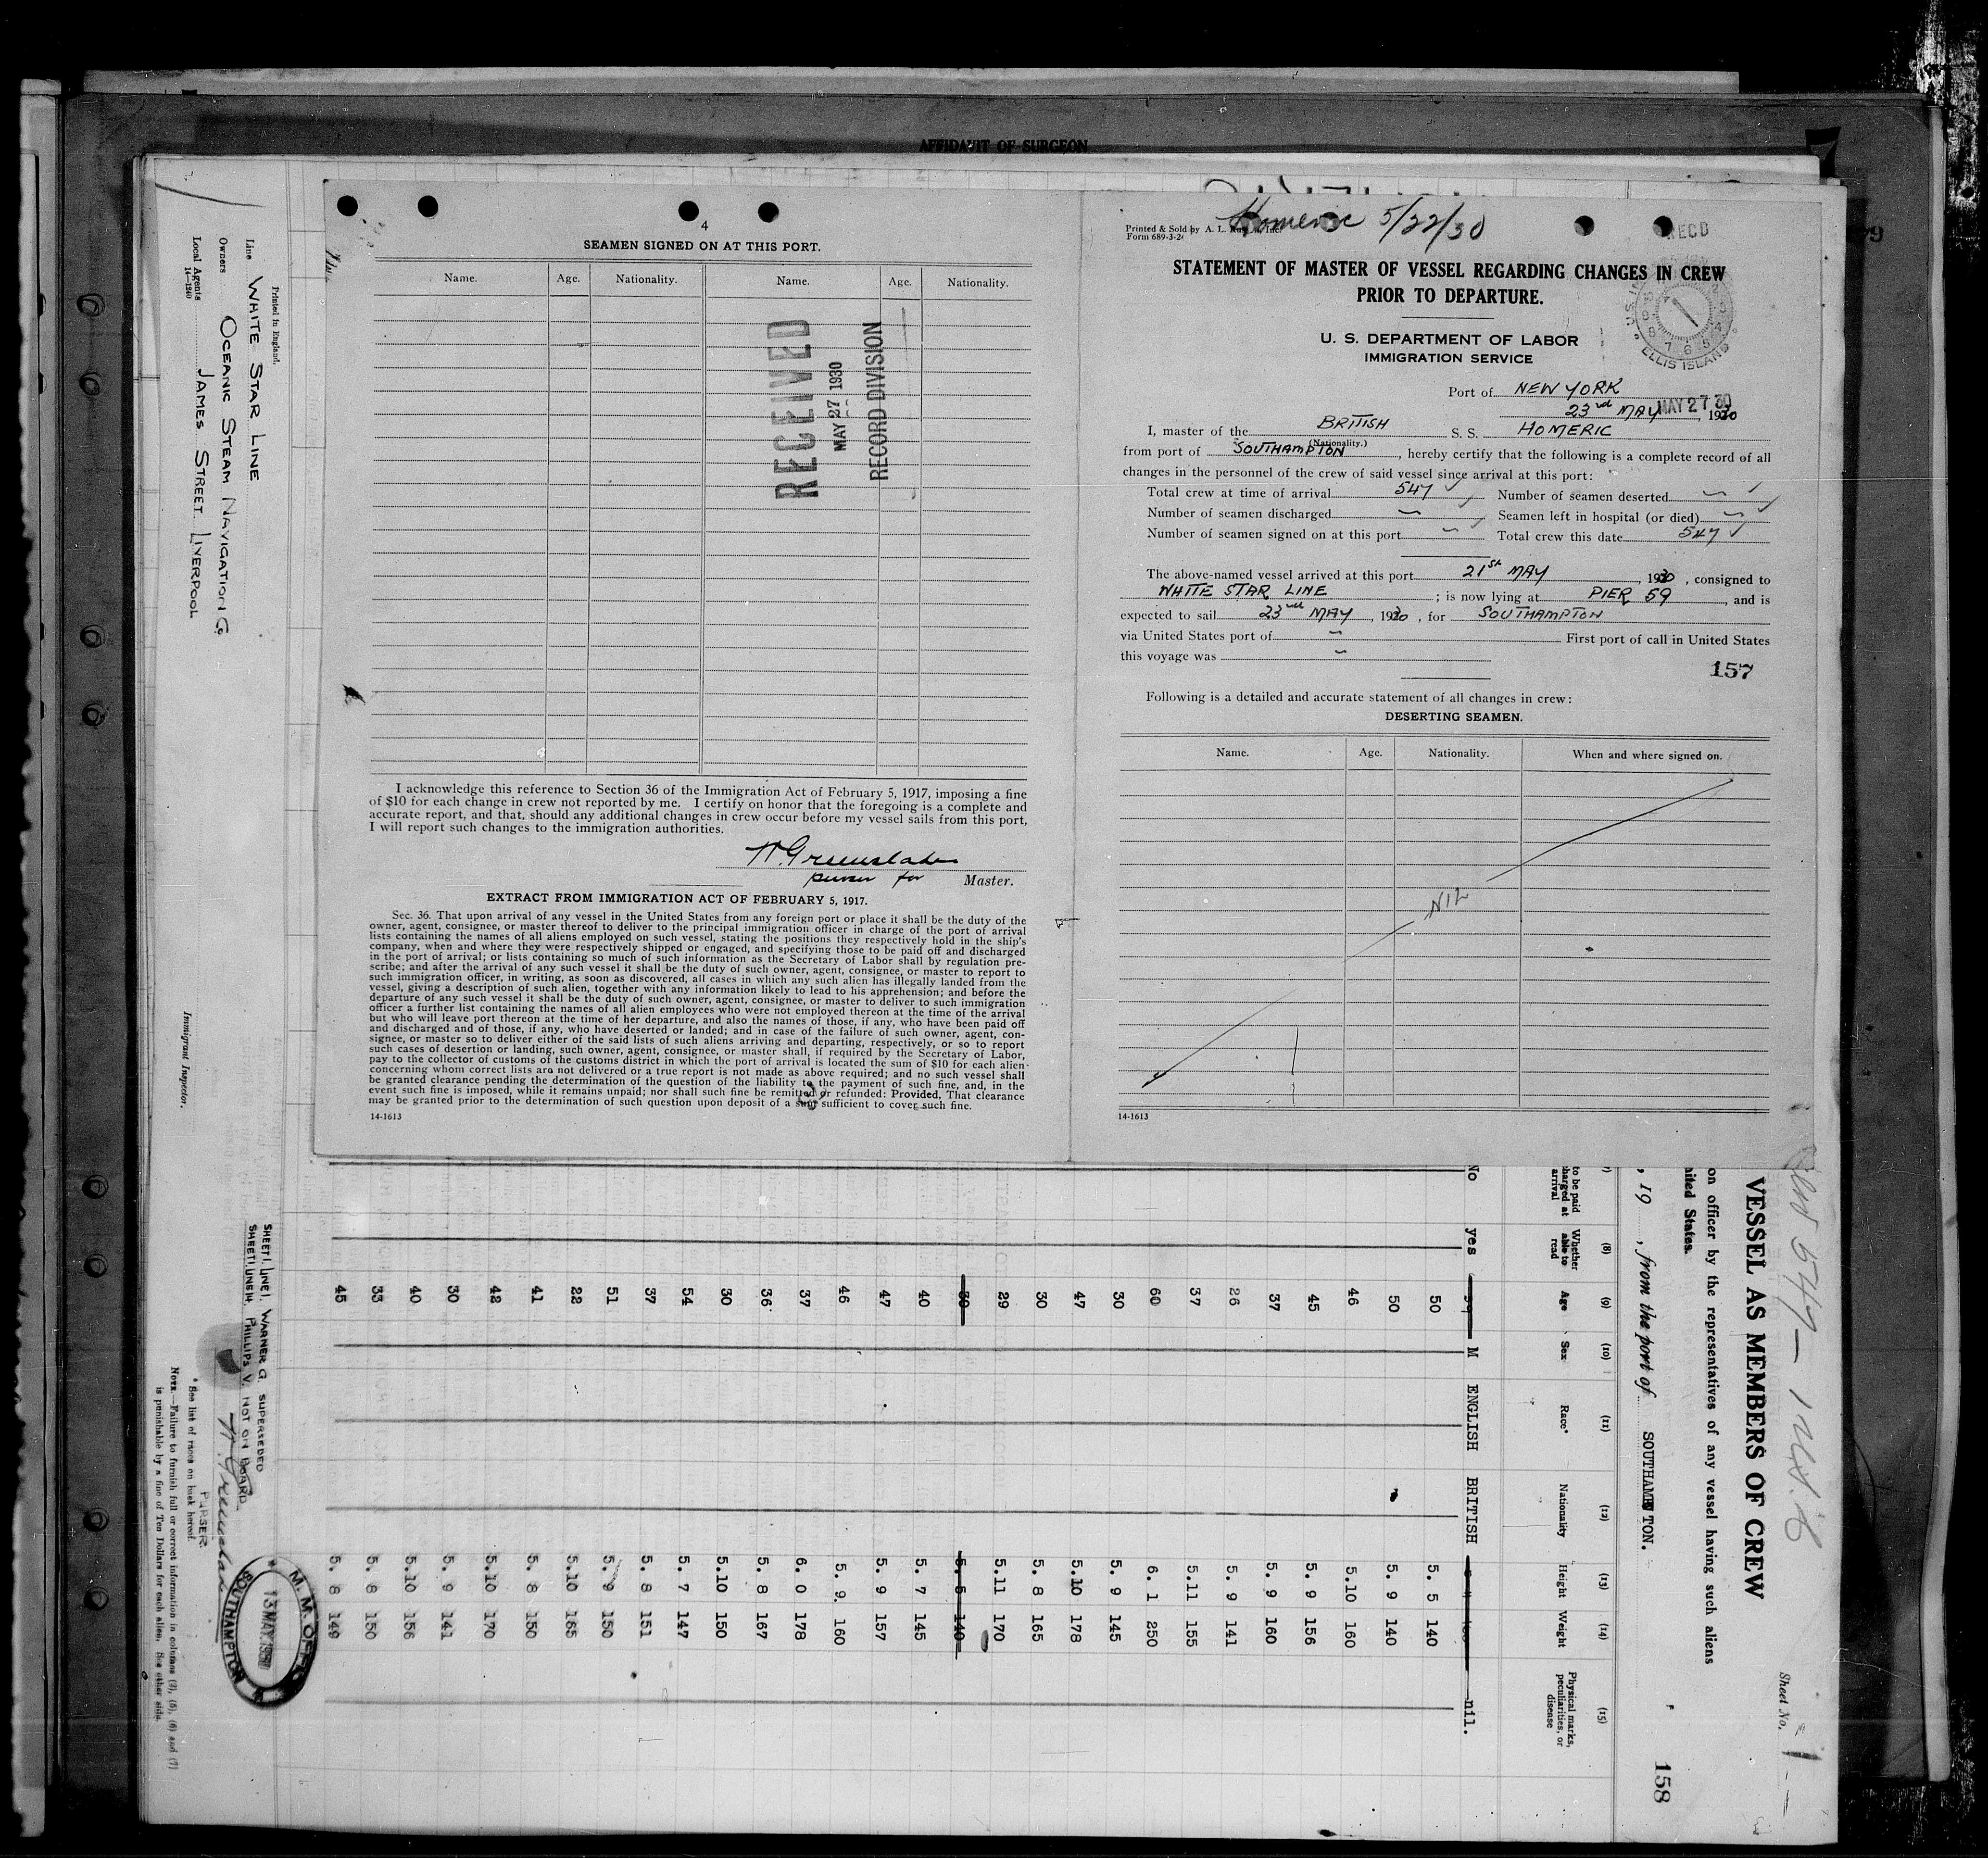 AFFIDAVIT OF SURGEON
4
SEAMEN SIGNED ON AT THIS PORT.
Name. Age. Nationality. Name. Age. Nationality.
RECEIVED
MAY 27 1930
RECORD DIVISION
I acknowledge this reference to Section 36 of the Immigration Act of February 5, 1917, imposing a fine
of $10 for each change in crew not reported by me. I certify on honor that the foregoing is a complete and
accurate report, and that, should any additional changes in crew occur before my vessel sails from this port,
I will report such changes to the immigration authorities.
W. Greenslade
purser for Master.
EXTRACT FROM IMMIGRATION ACT OF FEBRUARY 5, 1917.
Sec. 36. That upon arrival of any vessel in the United States from any foreign port or place it shall be the duty of the
owner, agent, consignee, or master thereof to deliver to the principal immigration officer in charge of the port of arrival
lists containing the names of all aliens employed on such vessel, stating the positions they respectively hold in the ship's
company, when and where they were respectively shipped or engaged, and specifying those to be paid off and discharged
in the port of arrival; or lists containing so much of such information as the Secretary of Labor shall by regulation pre-
scribe; and after the arrival of any such vessel it shall be the duty of such owner, agent, consignee, or master to report to
such immigration officer, in writing, as soon as discovered, all cases in which any such alien has illegally landed from the
vessel, giving a description of such alien, together with any information likely to lead to his apprehension; and before the
departure of any such vessel it shall be the duty of such owner, agent, consignee, or master to deliver to such immigration
officer a further list containing the names of all alien employees who were not employed thereon at the time of the arrival
but who will leave port thereon at the time of her departure, and also the names of those, if any, who have been paid off
and discharged and of those, if any, who have deserted or landed; and in case of the failure of such owner, agent, con-
signee, or master so to deliver either of the said lists of such aliens arriving and departing, respectively, or so to report
such cases of desertion or landing, such owner, agent, consignee, or master shall, if required by the Secretary of Labor,
pay to the collector of customs of the customs district in which the port of arrival is located the sum of $10 for each alien
concerning whom correct lists are not delivered or a true report is not made as above required; and no such vessel shall
be granted clearance pending the determination of the question of the liability to the payment of such fine, and, in the
event such fine is imposed, while it remains unpaid; nor shall such fine be remitted or refunded: Provided, That clearance
may be granted prior to the determination of such question upon deposit of a sum sufficient to cover such fine.
14-1613
Homeric 5/22/30
Printed & Sold by A. L.
Form 689-3-2
STATEMENT OF MASTER OF VESSEL REGARDING CHANGES IN CREW
PRIOR TO DEPARTURE.
U. S. DEPARTMENT OF LABOR
IMMIGRATION SERVICE
RECD
ELLIS ISLAND
MAY 27 30
Port of NEW YORK
23rd MAY, 1930
I, master of the BRITISH S. S. HOMERIC
(Nationality.)
from port of SOUTHAMPTON, hereby certify that the following is a complete record of all
changes in the personnel of the crew of said vessel since arrival at this port:
Total crew at time of arrival 547 Number of seamen deserted
Number of seamen discharged Seamen left in hospital (or died)
Number of seamen signed on at this port Total crew this date 547
The above-named vessel arrived at this port 21st MAY, 1930, consigned to
WHITE STAR LINE; is now lying at PIER 59, and is
expected to sail 23rd MAY, 1930, for SOUTHAMPTON
via United States port of First port of call in United States
this voyage was
157
Following is a detailed and accurate statement of all changes in crew:
DESERTING SEAMEN.
Name. Age. Nationality. When and where signed on.
NIL
14-1613
Printed in England.
Line WHITE STAR LINE
Owners OCEANIC STEAM NAVIGATION Co
Local Agents JAMES STREET. LIVERPOOL
14-1240
Immigrant Inspector.
Sheet No. 1
VESSEL AS MEMBERS OF CREW
on officer by the representatives of any vessel having such aliens
ited States.
, 19 , from the port of SOUTHAMPTON.
158
to be paid
harged at
arrival
(8) Whether able to read
(9) Age
(10) Sex
(11) Race*
(12) Nationality
(13) Height
(14) Weight
(15) Physical marks, peculiarities, or disease
No yes M ENGLISH BRITISH nil.
50 5. 5 140
50 5. 9 140
46 5.10 160
45 5. 9 156
37 5. 9 160
26 5. 9 141
37 5.11 155
60 6. 1 250
30 5. 9 145
47 5.10 178
30 5. 8 165
29 5.11 170
30 5. 5 140
40 5. 7 145
47 5. 9 157
46 5. 9. 160
37 6. 0 178
36 5. 8 167
30 5.10 150
54 5. 7 147
37 5. 8 151
51 5. 9 150
22 5.10 165
41 5. 8 150
42 5.10 170
30 5. 9 141
40 5.10 156
33 5. 8 150
45 5. 8 149
SHEET 1. LINE 1. WARNER G. SUPERSEDED
SHEET 1. LINE 14. PHILLIPS V. NOT ON BOARD
W. Greenslade
PURSER.
* See list of races on back hereof.
NOTE.—Failure to furnish full or correct information in columns (3), (5), (6) and (7)
is punishable by a fine of Ten Dollars for each alien. See other side.
M. M. OFFICE
13 MAY 1930
SOUTHAMPTON